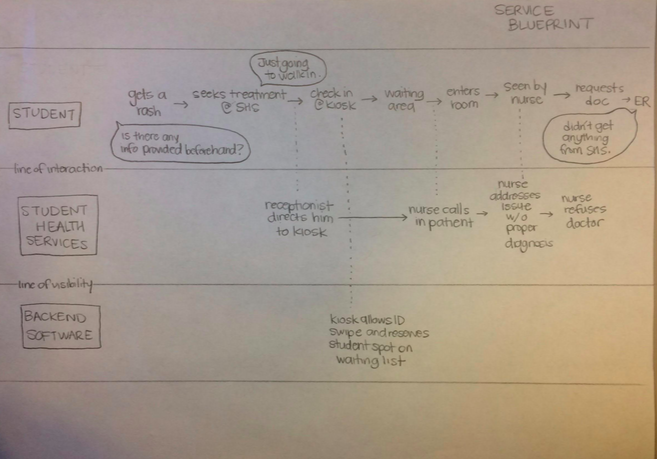 SERVICE
BLUEPRINT
Just going
to walk in.
STUDENT
gets a
rash
→ seeks treatment
@ SHS
→ check in
@ kiosk
→ waiting
area
→ enters
room
→ seen by
nurse
→ requests
doc → ER
is there any
info provided beforehand?
didn't get
anything
from SHS.
line of interaction
STUDENT
HEALTH
SERVICES
receptionist
directs him
to kiosk
→ nurse calls
in patient
→ nurse
addresses
issue
w/o
proper
diagnosis
→ nurse
refuses
doctor
line of visibility
BACKEND
SOFTWARE
kiosk allows ID
swipe and reserves
student spot on
waiting list